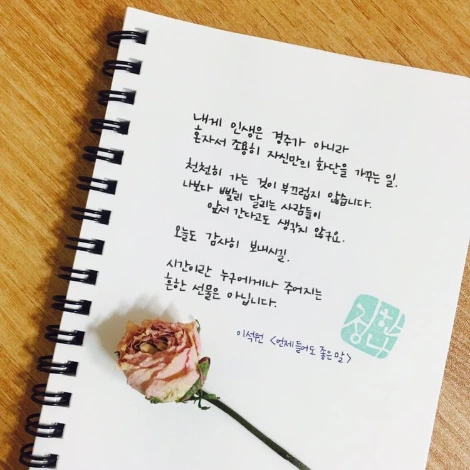 내게 인생은 경주가 아니라
혼자서 조용히 자신만의 화단을 가꾸는 일.
천천히 가는 것이 부끄럽지 않습니다.
나보다 빨리 달리는 사람들이
앞서 간다고도 생각지 않구요.
오늘도 감사히 보내시길.
시간이란 누구에게나 주어지는
흔한 선물은 아닙니다.
이석원 <언제 들어도 좋은 말>